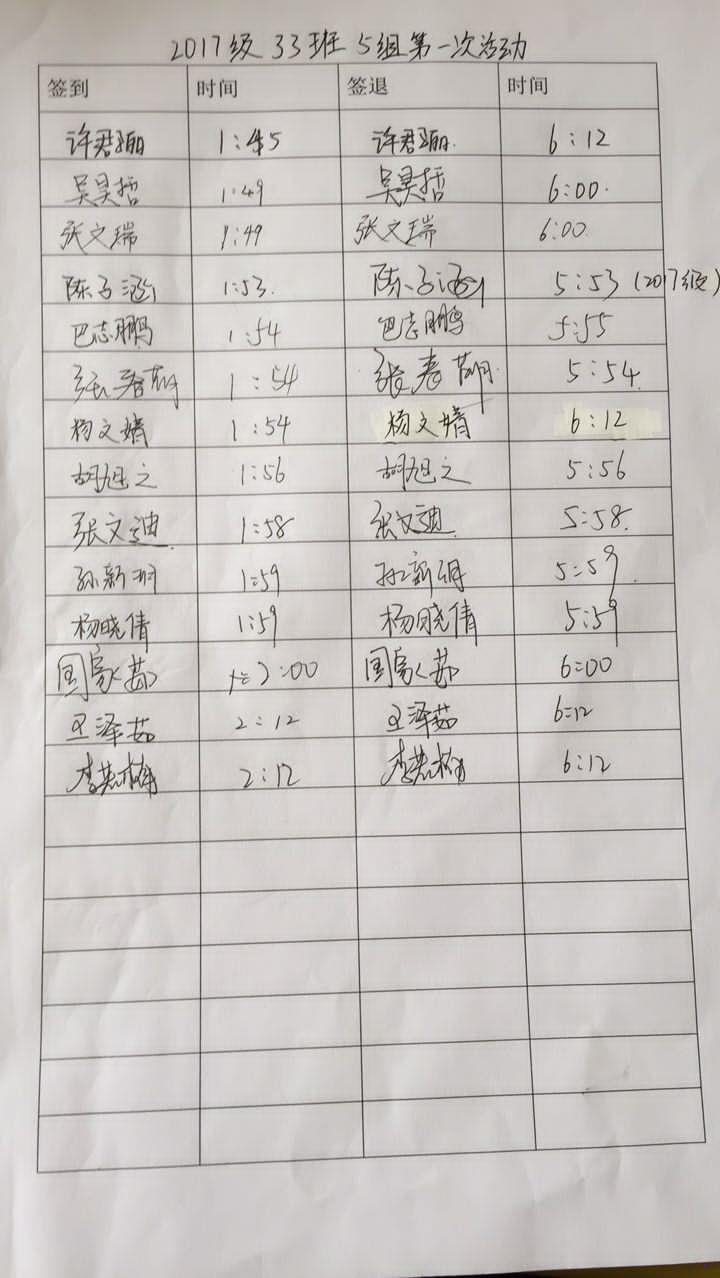 2017级 33班 5组第一次活动
签到 时间 签退 时间
许君珊 1:45 许君珊 6:12
吴昊哲 1:49 吴昊哲 6:00
张文瑞 1:49 张文瑞 6:00
陈子涵 1:53 陈子涵 5:53 (2017级)
巴志鹏 1:54 巴志鹏 5:55
张春萌 1:54 张春萌 5:54
杨文婧 1:54 杨文婧 6:12
胡旭之 1:56 胡旭之 5:56
张文迪 1:58 张文迪 5:58
孙新明 1:59 孙新明 5:59
杨晓倩 1:59 杨晓倩 5:59
国家茹 2:00 国家茹 6:00
王泽茹 2:12 王泽茹 6:12
李 2:12 李 6:12